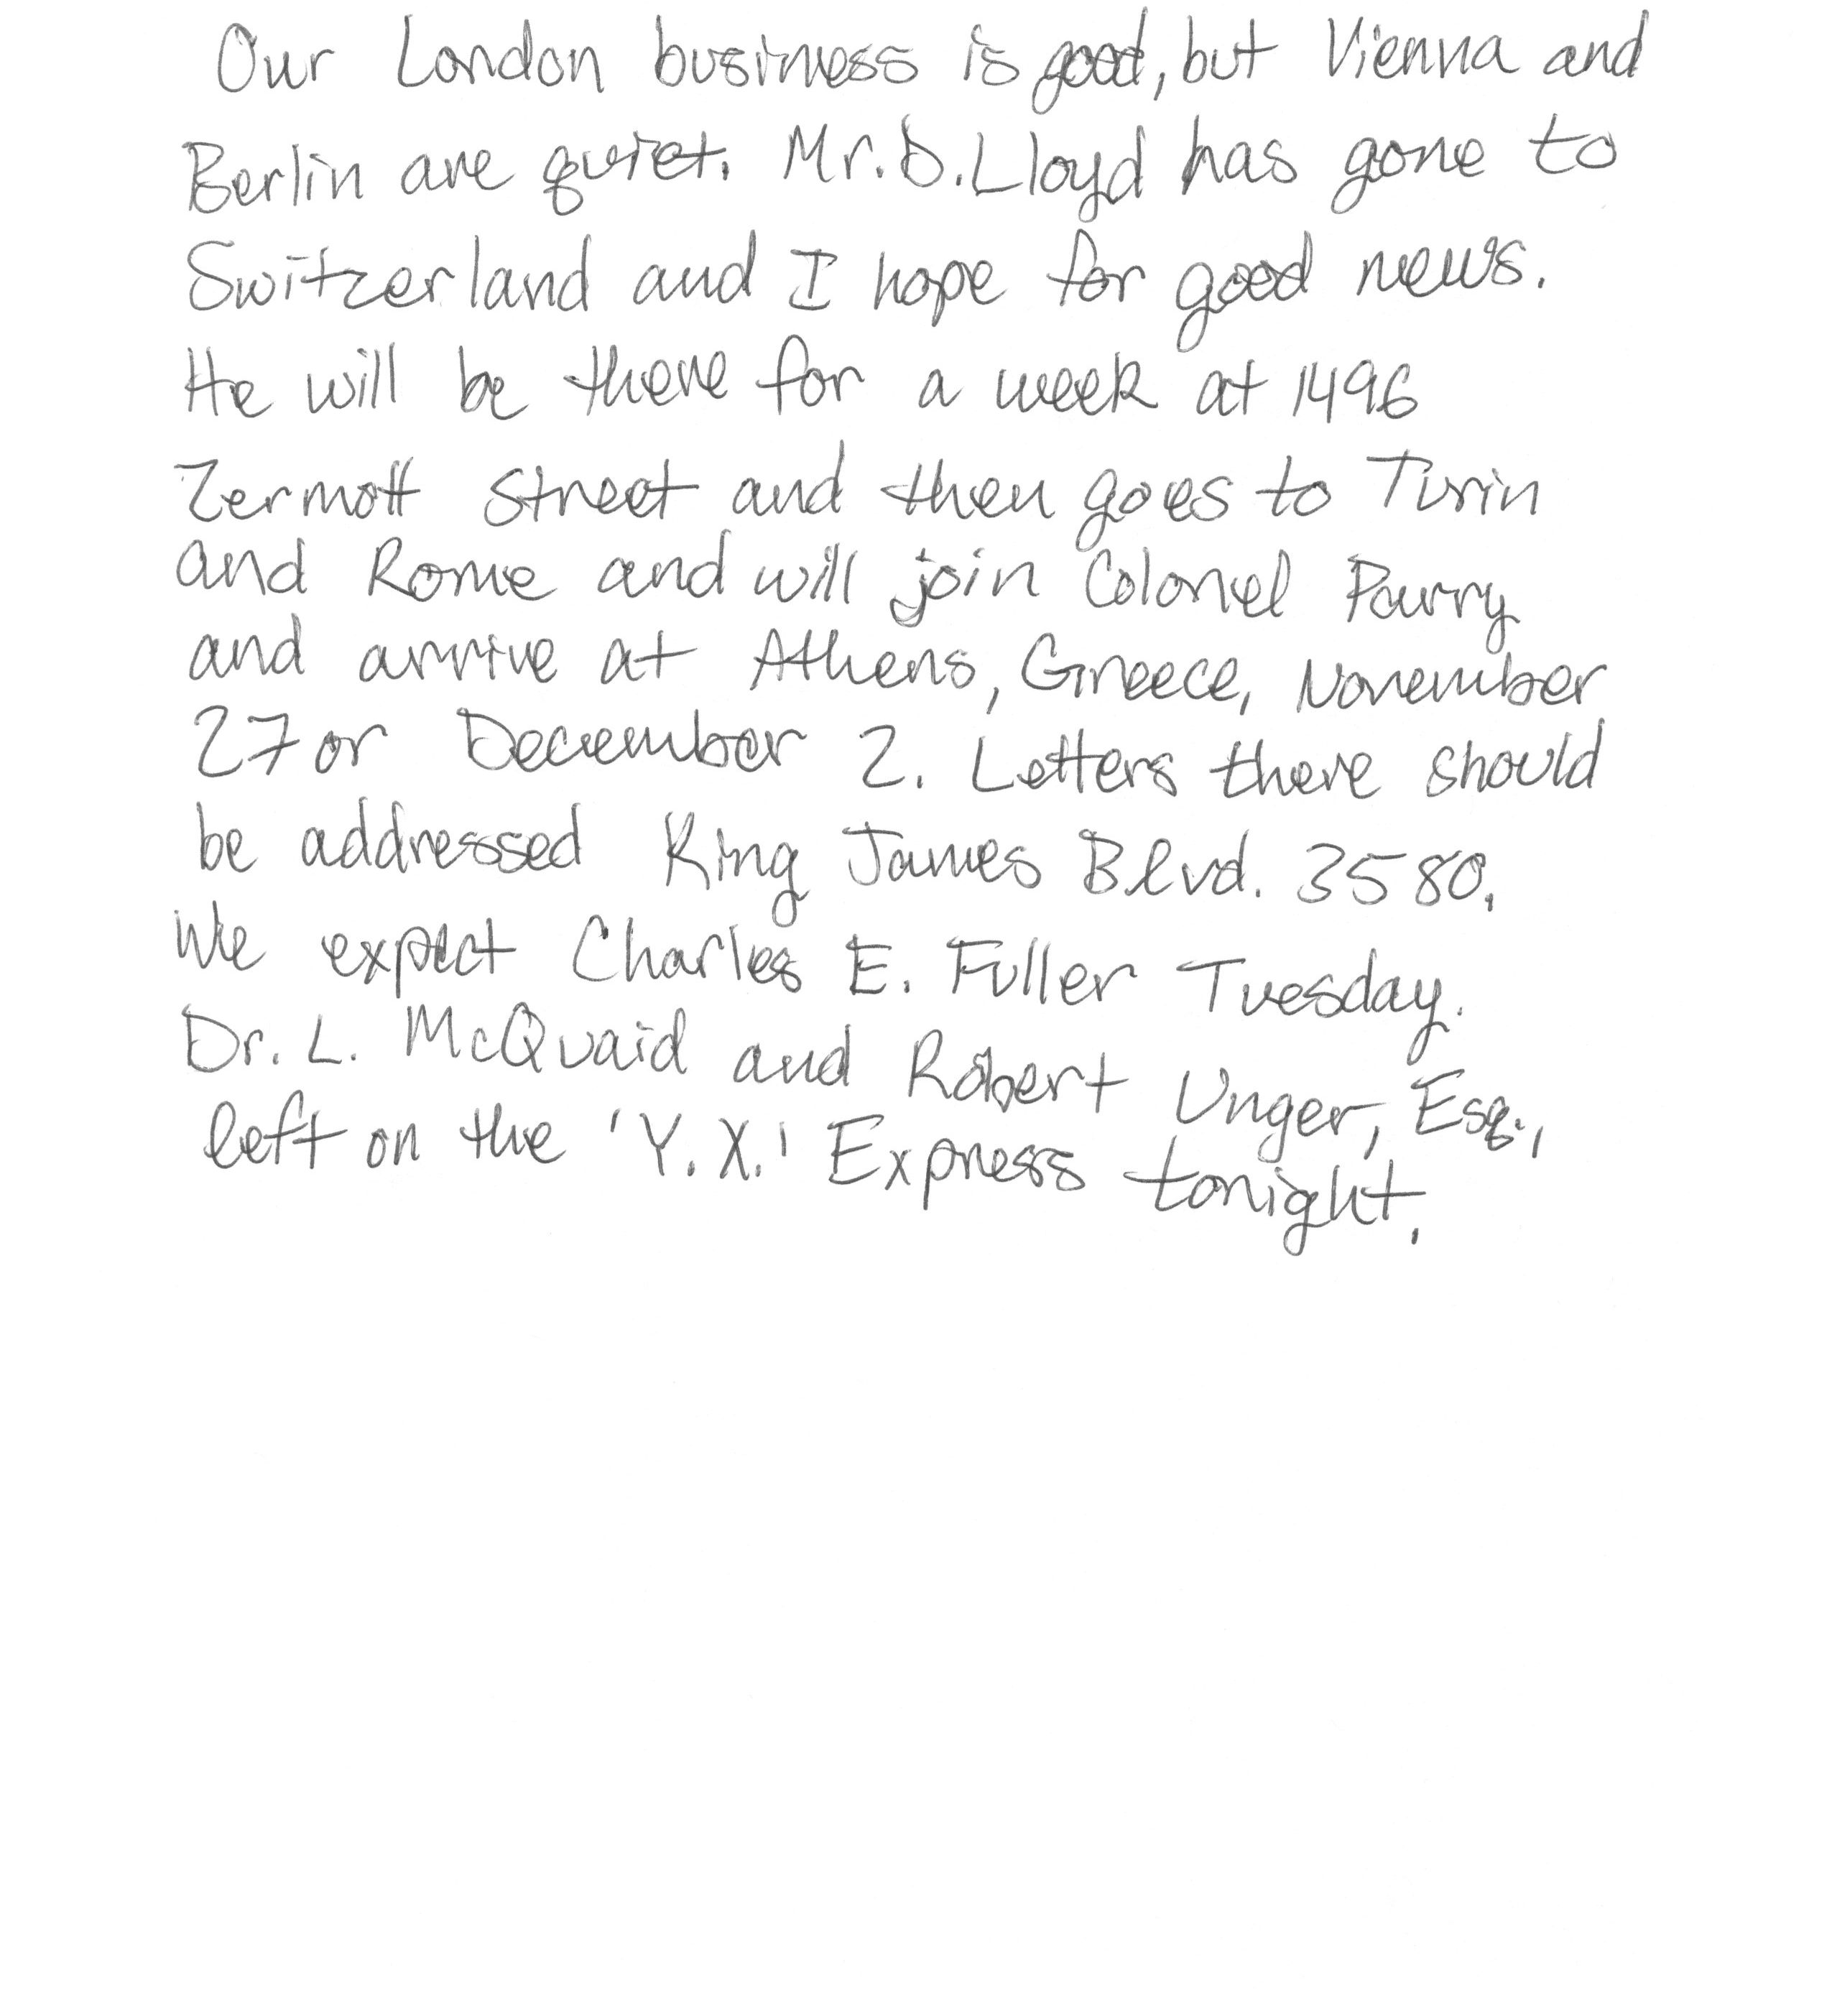 Our London business is good, but Vienna and
Berlin are quiet. Mr. D. Lloyd has gone to
Switzerland and I hope for good news.
He will be there for a week at 1496
Zermott Street and then goes to Turin
and Rome and will join Colonel Parry
and arrive at Athens, Greece, November
27 or December 2. Letters there should
be addressed King James Blvd. 3580.
We expect Charles E. Fuller Tuesday.
Dr. L. McQuaid and Robert Unger, Esq.,
left on the 'Y.X.' Express tonight.